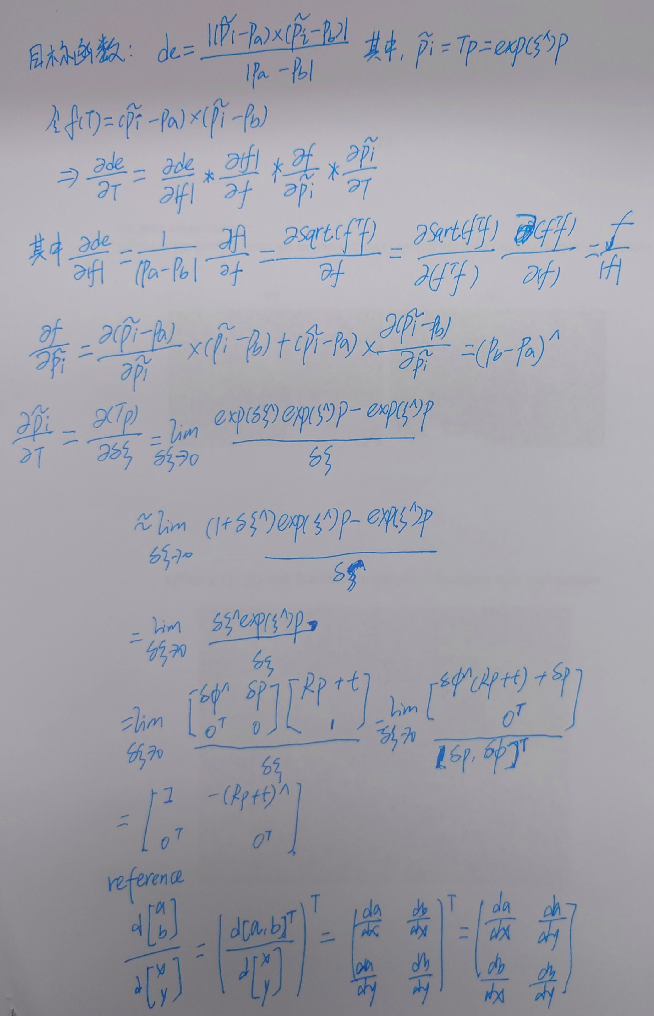 目标函数: de = |(p̃i-pa)×(p̃i-pb)| / |pa-pb| 其中, p̃i = Tp = exp(ξ^)p
令f(T) = (p̃i-pa)×(p̃i-pb)
⇒ ∂de/∂T = ∂de/∂|f| * ∂|f|/∂f * ∂f/∂p̃i * ∂p̃i/∂T
其中 ∂de/∂|f| = 1/|pa-pb| ∂|f|/∂f = ∂sqrt(fᵀf)/∂f = ∂sqrt(fᵀf)/∂(fᵀf) ∂(fᵀf)/∂(f) = f/|f|
∂f/∂p̃i = ∂(p̃i-pa)/∂p̃i ×(p̃i-pb)+(p̃i-pa)× ∂(p̃i-pb)/∂p̃i = (pb-pa)^
∂p̃i/∂T = ∂(Tp)/∂δξ = lim δξ→0 (exp(δξ^)exp(ξ^)p - exp(ξ^)p) / δξ
≈ lim δξ→0 ((1+δξ^)exp(ξ^)p - exp(ξ^)p) / δξ
= lim δξ→0 δξ^exp(ξ^)p / δξ
= lim δξ→0 [δφ^ δρ; 0ᵀ 0][Rp+t; 1] / δξ = lim δξ→0 [δφ^(Rp+t)+δρ; 0ᵀ] / [δρ, δφ]ᵀ
= [I -(Rp+t)^; 0ᵀ 0ᵀ]
reference
d[a; b] / d[x; y] = (d[a, b]ᵀ / d[x; y])ᵀ = [da/dx db/dx; da/dy db/dy]ᵀ = [da/dx da/dy; db/dx db/dy]